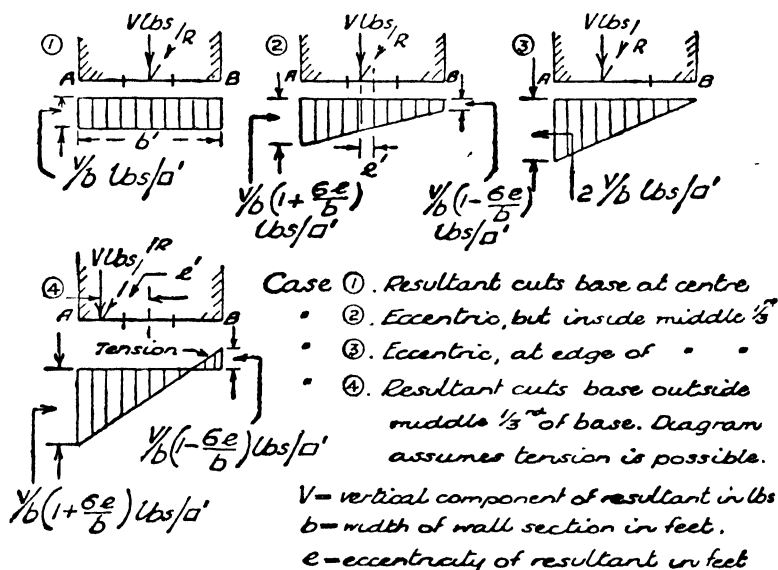 ① V lbs R
A B
b'
V/b lbs/□'
② V lbs R
A B
e'
V/b(1+6e/b)
lbs/□'
V/b(1-6e/b)
lbs/□'
③ V lbs R
A B
2 V/b lbs/□'
④ V lbs R e'
A B
Tension
V/b(1-6e/b) lbs/□'
V/b(1+6e/b) lbs/□'
Case ①. Resultant cuts base at centre
" ②. Eccentric, but inside middle 1/3rd
" ③. Eccentric, at edge of " "
" ④. Resultant cuts base outside
middle 1/3rd of base. Diagram
assumes tension is possible.
V = vertical component of resultant in lbs
b = width of wall section in feet.
e = eccentricity of resultant in feet